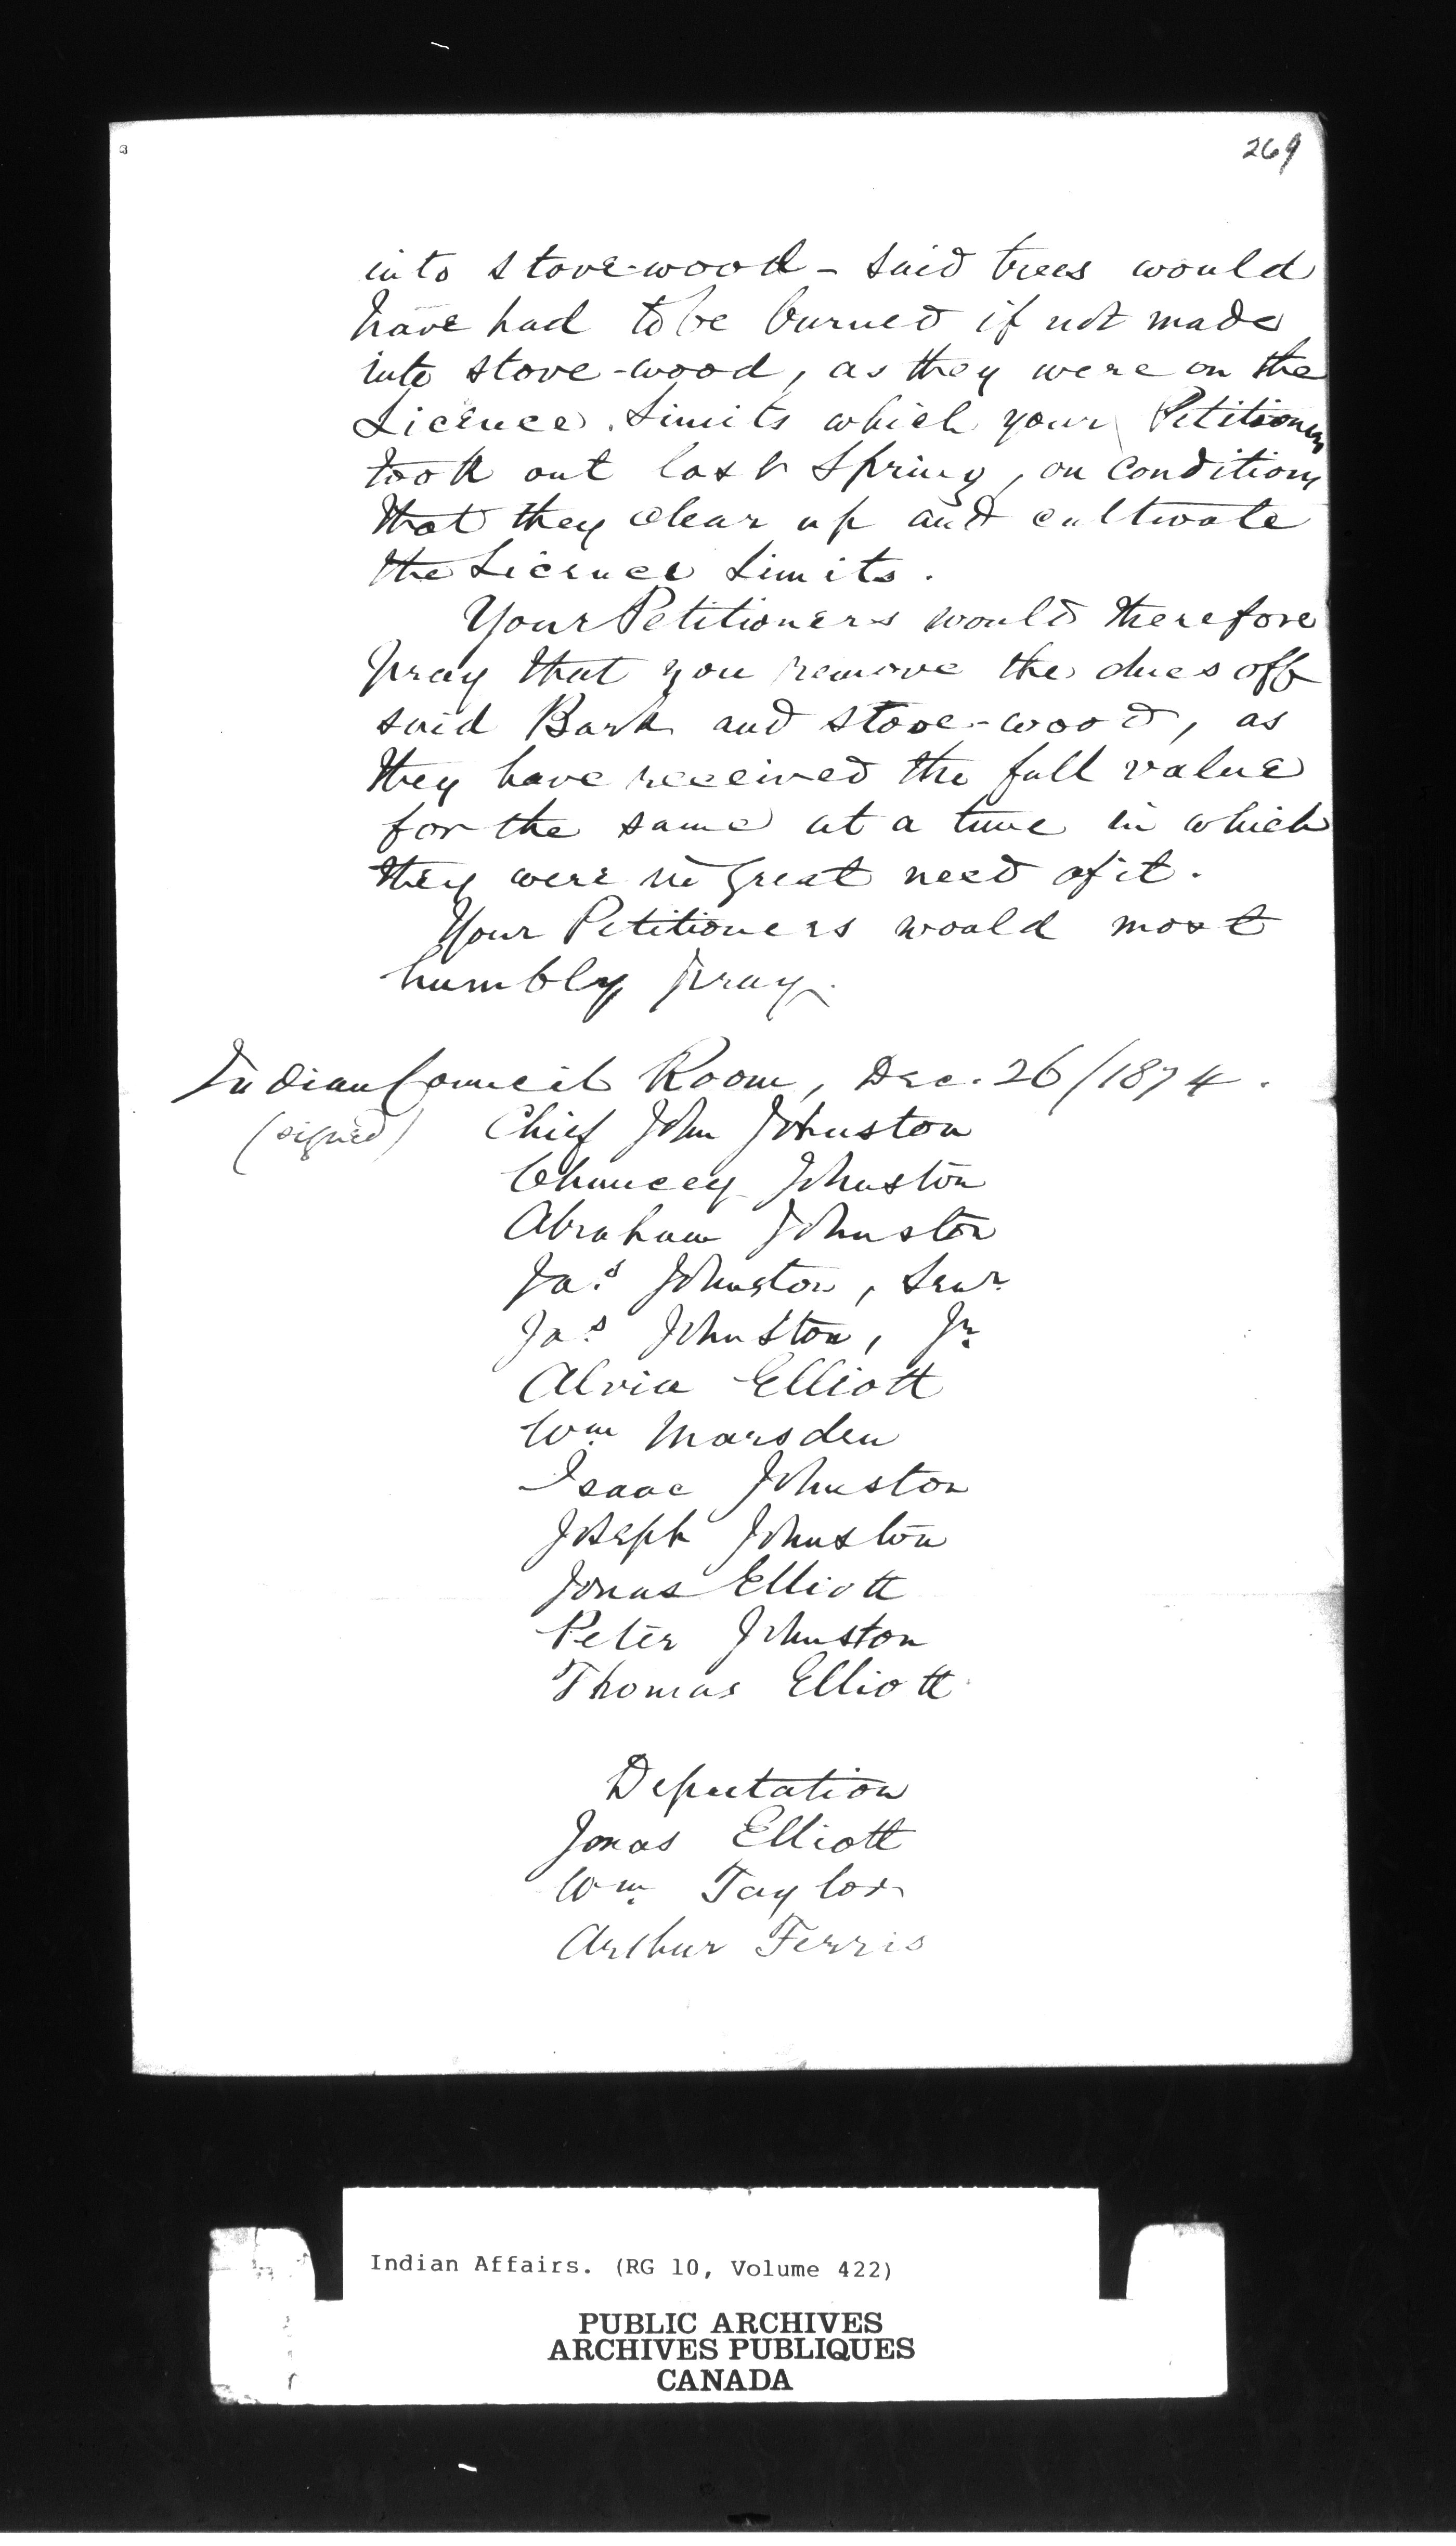 269
into stove-wood - said trees would
have had to be burned if not made
into stove-wood, as they were on the
Licence Limits which your Petitioners
took out last Spring, on condition
that they clear up and cultivate
the Licence Limits.
Your Petitioners would therefore
pray that you remove the dues off
said Bark and stove-wood, as
they have received the full value
for the same at a time in which
they were in great need of it.
Your Petitioners would most
humbly pray.
Indian Council Room, Dec. 26/1874.
(signed) Chief John Johnston
Chauncey Johnston
Abraham Johnston
Jas. Johnston, Senr.
Jas. Johnston, Jr.
Alvin Elliott
Wm. Marsden
Isaac Johnston
Joseph Johnston
Jonas Elliott
Peter Johnston
Thomas Elliott
Deputation
Jonas Elliott
Wm. Taylor
Arthur Ferris
Indian Affairs. (RG 10, Volume 422)
PUBLIC ARCHIVES
ARCHIVES PUBLIQUES
CANADA